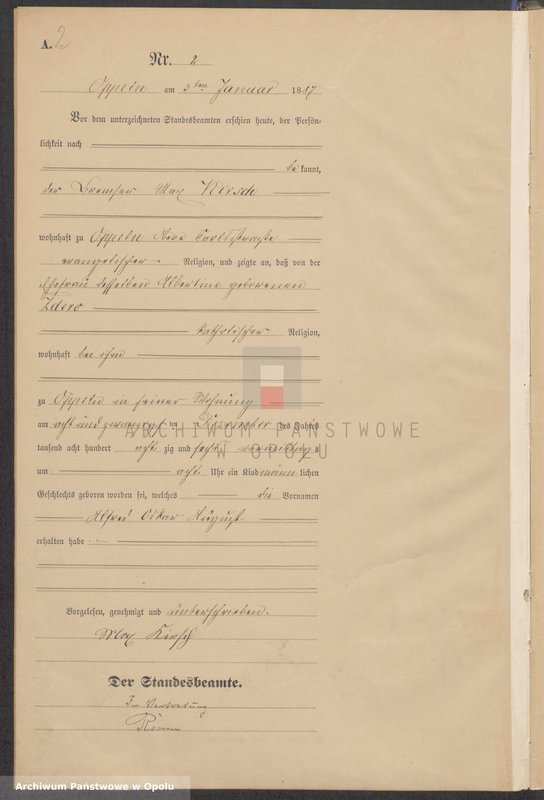 A. 2
Nr. 2
Oppeln am 3ten Januar 1887
Vor dem unterzeichneten Standesbeamten erschien heute, der Persön-
lichkeit nach
bekannt,
der Bremser Max Kirsch
wohnhaft zu Oppeln Neue Carlsstraße
evangelischer Religion, und zeigte an, daß von der
Ehefrau desselben Albertine geborenen
katholischer Religion,
wohnhaft bei ihm
zu Oppeln in seiner Wohnung
am acht und zwanzigsten Dezember des Jahres
tausend acht hundert acht zig und sechs vormittags
um acht Uhr ein Kind männlichen
Geschlechts geboren worden sei, welches die Vornamen
Alfred Oskar August
erhalten habe
Vorgelesen, genehmigt und unterschrieben.
Max Kirsch
Der Standesbeamte.
In Vertretung
ARCHIWUM PAŃSTWOWE
W OPOLU
Archiwum Państwowe w Opolu